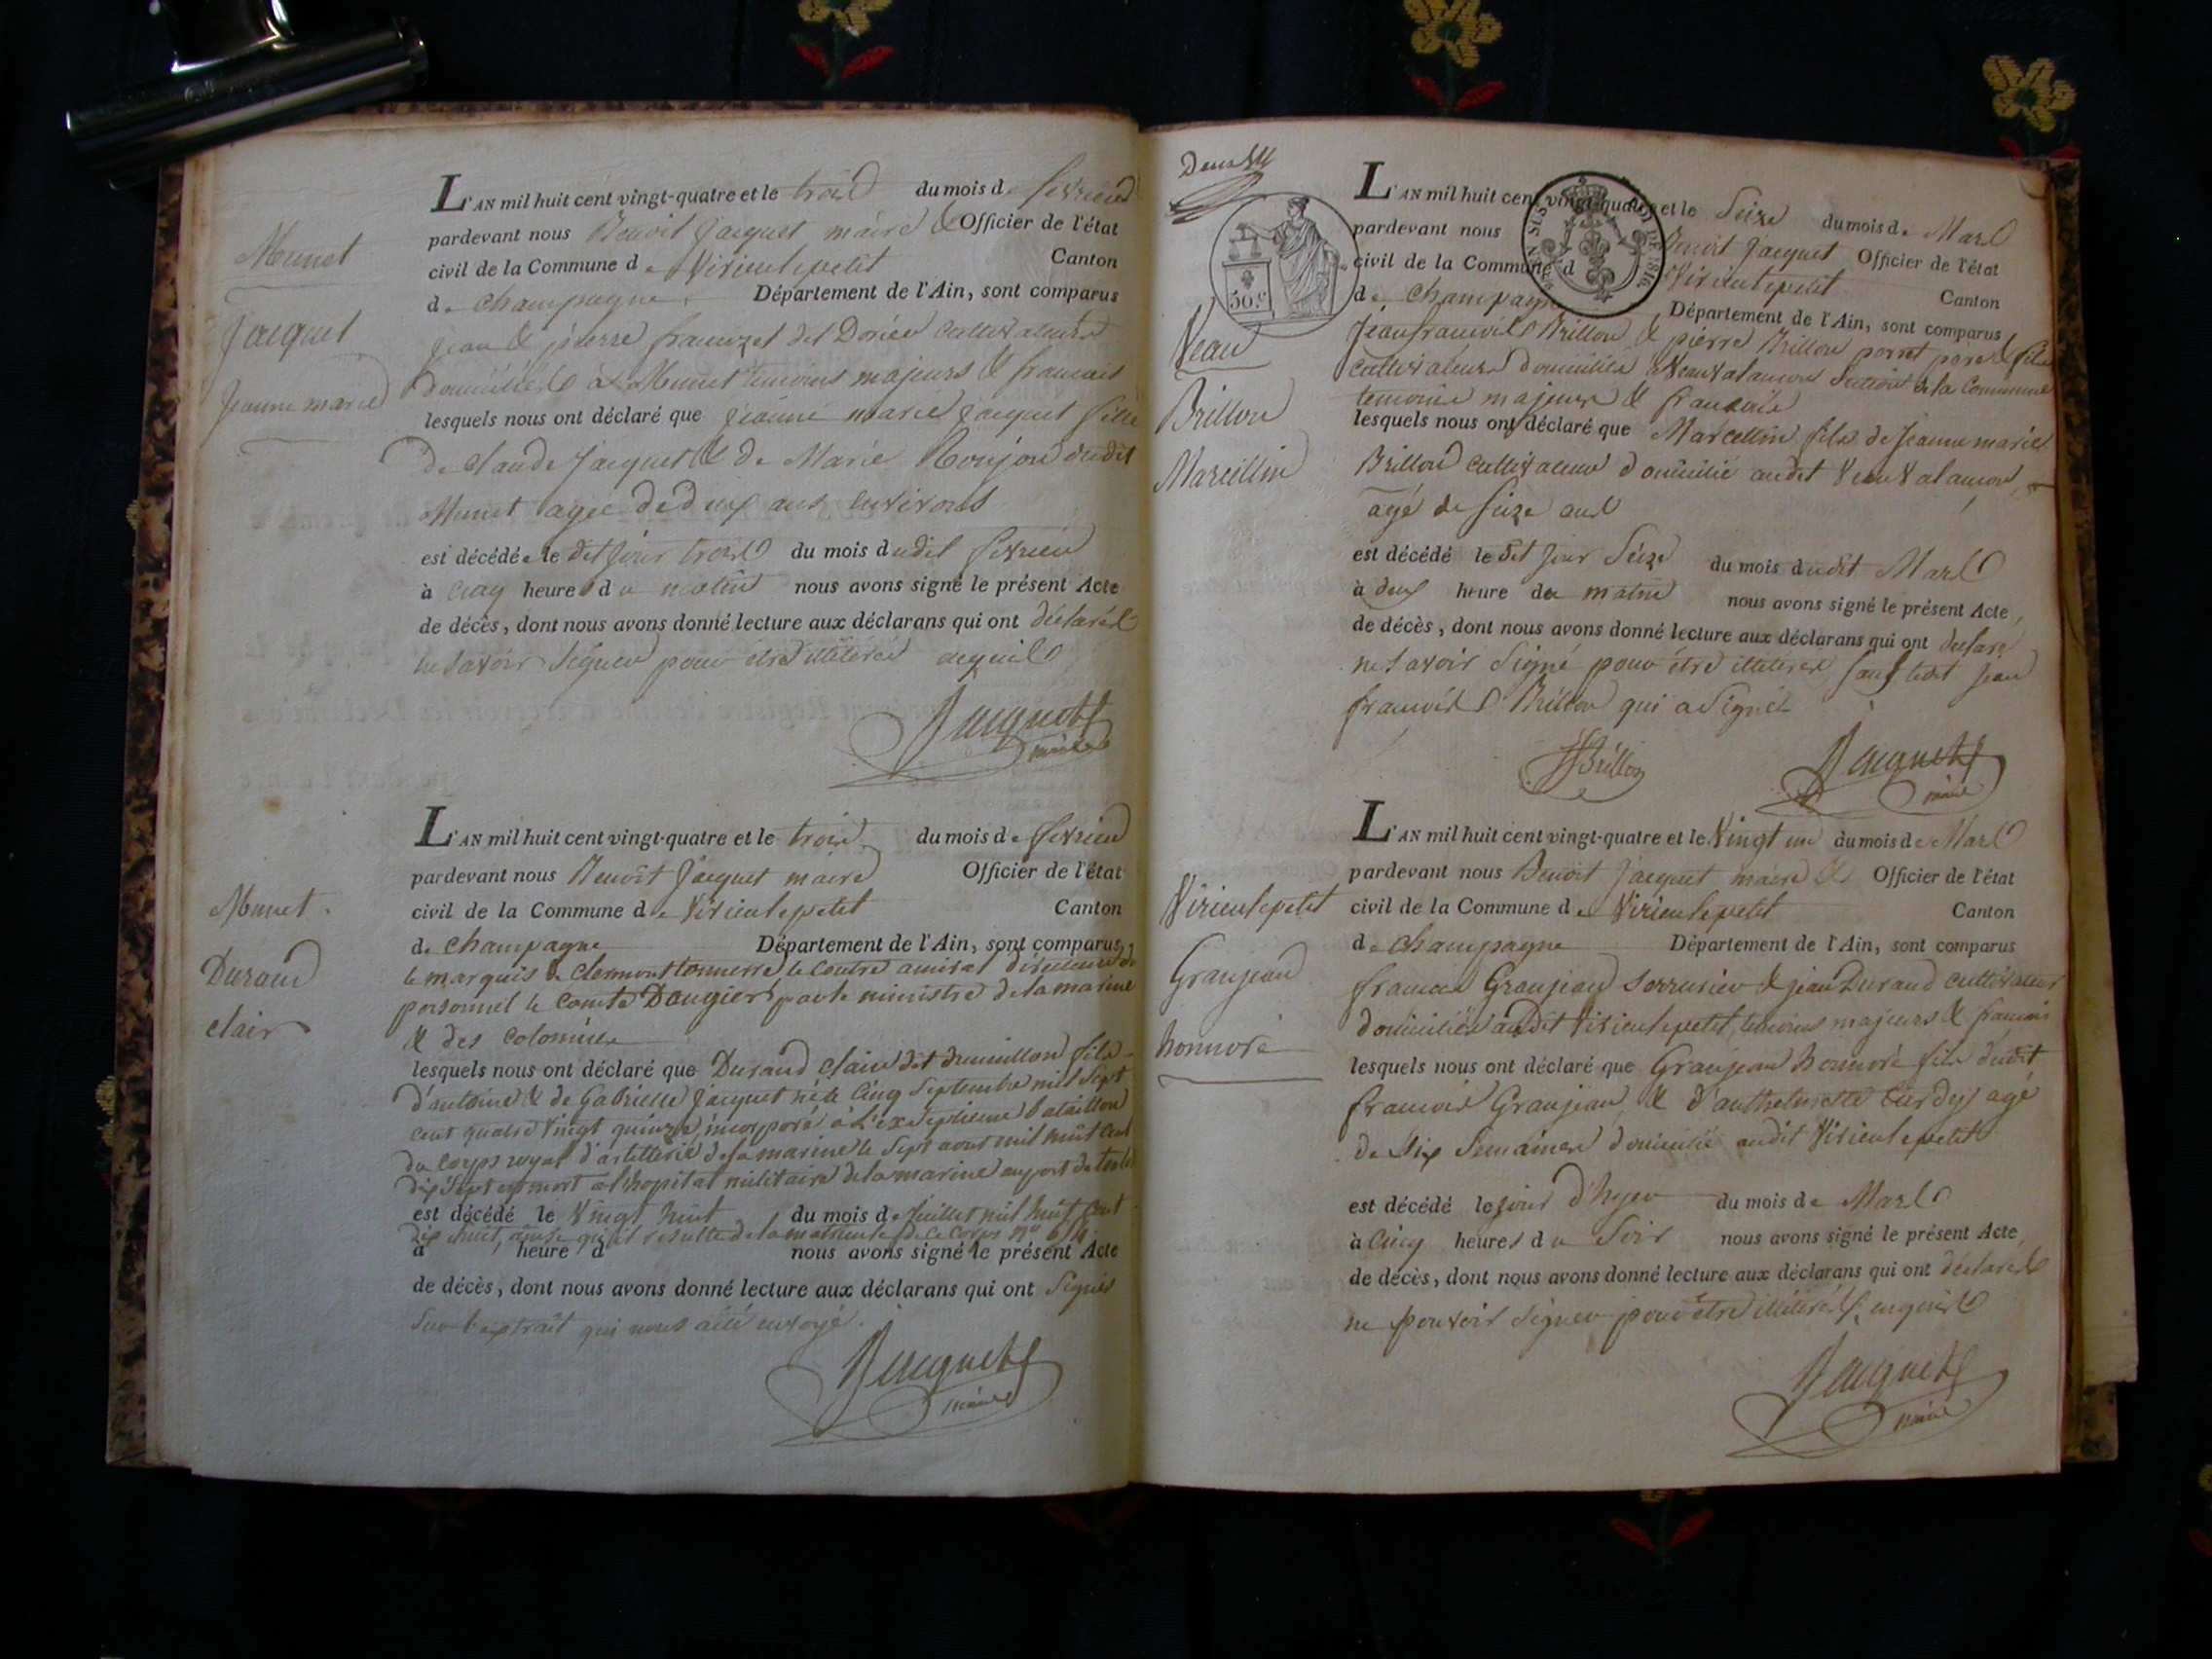 Munet
Jacquet
Jeanne marie
L'AN mil huit cent vingt-quatre et le trois du mois de fevrier
pardevant nous Benoit Jacquet maire & Officier de l'état
civil de la Commune de Virieulepetit Canton
de Champagne Département de l'Ain, sont comparus
Jean & pierre francozet dit Dorier cultivateurs
domiciliés à Munet temoins majeurs & francais
lesquels nous ont déclaré que jeanne marie jacquet fille
de claude Jacquet & de Marie Roujon dudit
Munet agée de deux ans environs
est décédée le dit jour trois du mois dudit fevrier
à cinq heures du matin nous avons signé le présent Acte
de décès, dont nous avons donné lecture aux déclarans qui ont déclarés
ne savoir signer pour être illiterés requis
Jacquet
maire
Munet
Durand
clair
L'AN mil huit cent vingt-quatre et le trois du mois de fevrier
pardevant nous Benoit Jacquet maire Officier de l'état
civil de la Commune de Virieulepetit Canton
de Champagne Département de l'Ain, sont comparus
le marquis de clermont tonnerre le contre amiral directeur du
personnel le comte Daugier par le ministre de la marine
& des colonies
lesquels nous ont déclaré que Durand clair dit fils
d'antoine & de Gabrielle Jacquet né le cinq septembre mil sept
cent quatre vingt quinze, incorporé à l'ex septieme bataillon
du corps royal d'artillerie de la marine le sept aout mil huit cent
dix sept est mort a l'hopital militaire de la marine au port de
est décédé le vingt huit du mois de juillet mil huit cent
dix huit, ainsi qu'il résulte de la matricule de ce corps
à heure d nous avons signé le présent Acte
de décès, dont nous avons donné lecture aux déclarans qui ont signés
sur l'extrait qui nous a été envoyé.
Jacquet
maire
50 c
Veau
Brillon
Marcellin
L'AN mil huit cent vingt-quatre et le seize du mois de Mars
pardevant nous Benoit Jacquet Officier de l'état
civil de la Commune d Virieulepetit Canton
de Champagne Département de l'Ain, sont comparus
Jean francois Brillon & pierre Brillon pere & fils
cultivateurs domiciliés section de la commune
temoins majeurs & francais
lesquels nous ont déclaré que Marcellin fils de Jeanne marie
Brillon cultivateur domicilié audit
agé de seize ans
est décédé le dit jour seize du mois dudit Mars
à deux heure du matin nous avons signé le présent Acte,
de décès, dont nous avons donné lecture aux déclarans qui ont declaré
ne savoir signé pour être illiterés sauf ledit jean
francois Brillon qui a signé
Brillon
Jacquet
maire
Virieulepetit
Granjean
honnoré
L'AN mil huit cent vingt-quatre et le vingt un du mois de Mars
pardevant nous Benoit Jacquet maire & Officier de l'état
civil de la Commune de Virieulepetit Canton
de Champagne Département de l'Ain, sont comparus
francois Granjean serrurier & jean Durand cultivateur
domiciliés audit Virieulepetit, temoins majeurs & francais
lesquels nous ont déclaré que Granjean honnoré fils dudit
francois Granjean & d'anthelmette Curdy agé
de six semaines domicilié audit Virieulepetit
est décédé le jour d'hyer du mois de Mars
à cinq heures du soir nous avons signé le présent Acte,
de décès, dont nous avons donné lecture aux déclarans qui ont déclarés
ne pouvoir signer pour être illiterés, enquis
Jacquet
maire